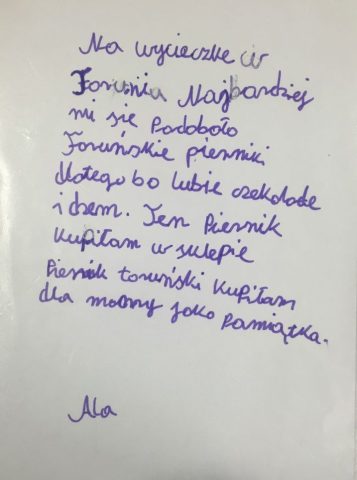 Na wycieczke w
Toruniu Najbardziej
mi się Podobało
Toruńskie pierniki
dlatego bo lubie czekolade
i dżem. Ten Piernik
Kupiłam w sklepie
Piernik toruński Kupiłam
dla mamy jako Pamiątka.
Ala